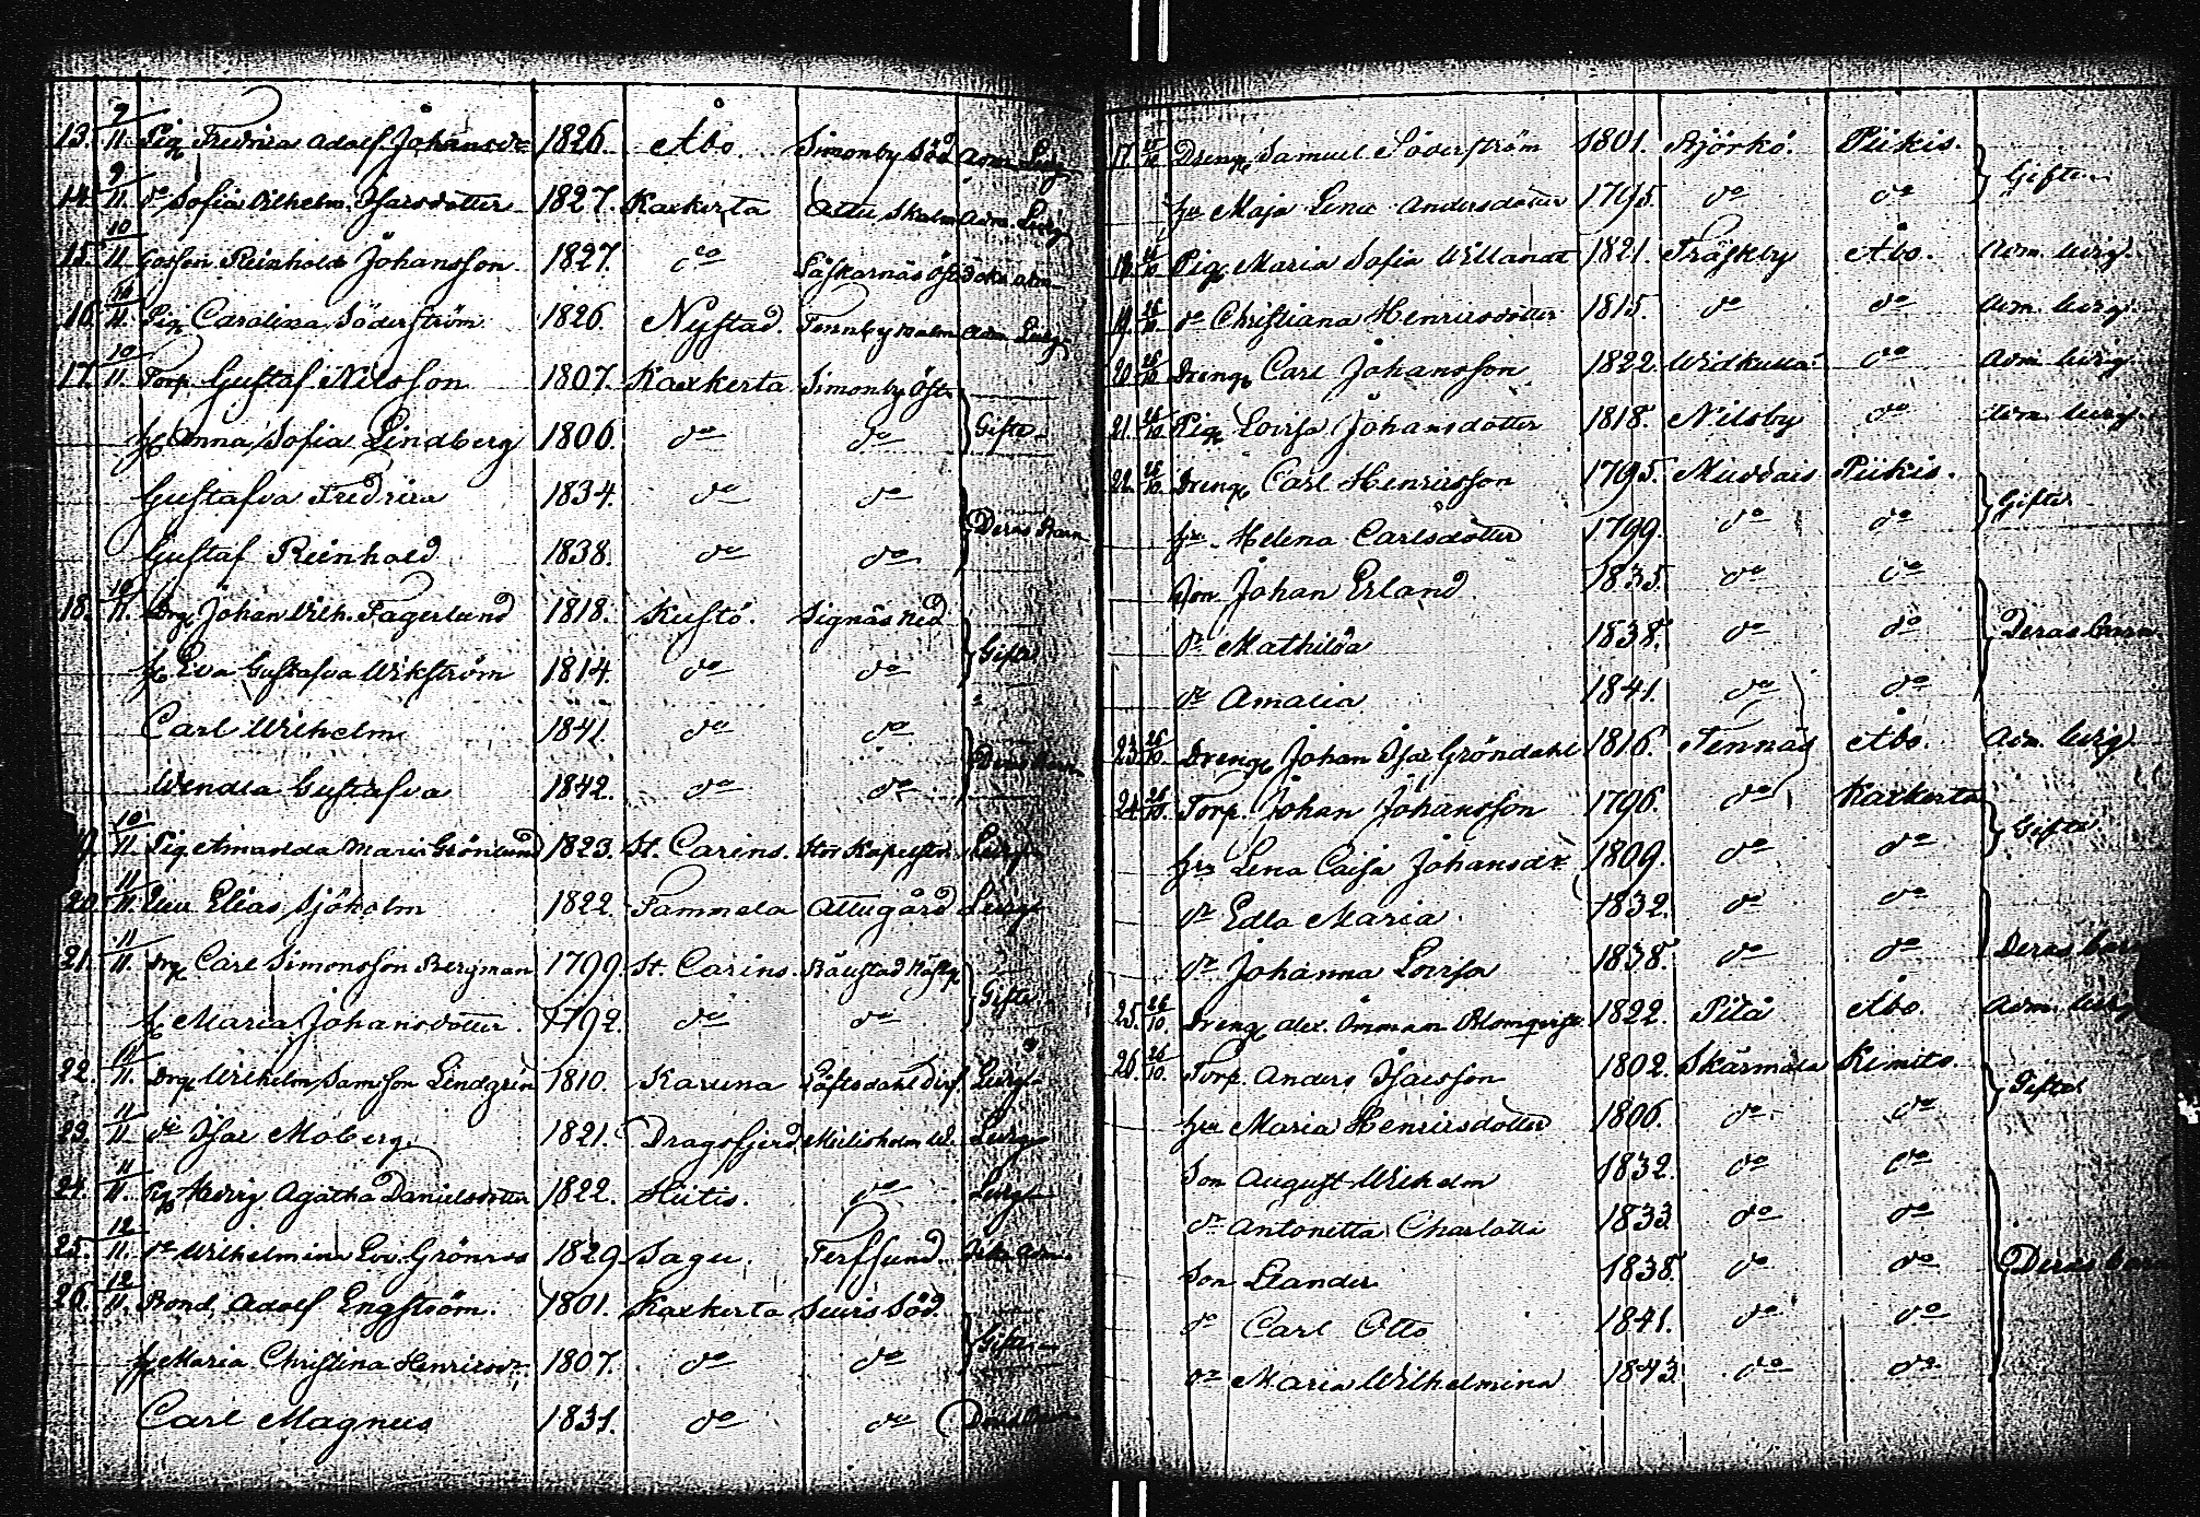 13. 9/11 Pig Fredrica Adolf. Johansdr 1826. Åbo. Simonby Söd Adm. Ledig
14. 9/11 do Sofia Vilhelm. Isaksdotter 1827. Kaxkerta Attu, Skalm Adm. Ledig
15. 10/11 Gossen Reinhold Johansson 1827. do Läskarnäs Öfr
16. 10/11 Pig Carolina Söderström 1826. Nystad. Tennby Malm Adm Ledig
17. 10/11 Torp. Gustaf Nilsson 1807. Kaxkerta Simonby Öfr
h. Anna Sofia Lindberg 1806. do do Gifte
Gustafva Fredrica 1834. do do
Deras Barn
Gustaf Reinhold 1838. do do
18. 10/11 Drg Johan Vilh. Fagerlund 1818. Kustö. Signäs Ned
h. Eva Gustafva Wikström 1814. do do Gifte
Carl Wilhelm 1841. do do
Deras Barn
Wendla Gustafva 1842. do do
19. 10/11 Pig. Amanda Maria Grönlund 1823. St. Carins. Stor Kapellstr. Ledig
20. 11/11 Elias Sjöholm 1822. Tammela Attugård Ledig
21. 11/11 Drg Carl Simonsson Bergman 1799. St. Carins.
h. Maria Johansdotter. 1792. do do Gifte
22. 11/11 Drg Wilhelm Samsson Lindgrén 1810. Karuna Ledig
23. 11/11 do Isac Moberg 1821. Dragsfjerd Ledig
24. 11/11 Pig Hedvig Agatha Danielsdotter 1822. Hitis. do Ledig
25. 12/11 do Wilhelmina Lov. Grönroos 1829. Sagu. Terfsund.
26. 12/11 Bond. Adolf Engström. 1801. Kaxkerta Seuris Söd.
h. Maria Christina Henricsdr. 1807. do do Gifte
Carl Magnus 1831. do do Deras Barn
17. Dreng Samuel Söderström 1801. Björkö. Piikis.
hu Maja Lena Andersdotter 1795. do do Gifte
18. 26/10 Pig Maria Sofia Willandt 1821. Träskby Åbo. Adm. ledig.
19. 26/10 do Christiana Henricsdotter 1815. do do Adm. ledig.
20. 26/10 Dreng Carl Johansson 1822 Widkulla do Adm ledig.
21. 26/10 Pig Lovisa Johansdotter 1818. Nilsby do Adm. ledig.
22. 26/10 Dreng Carl Henricsson 1795. Muddais Piikis.
hu Helena Carlsdotter 1799. do do Gifte
Son Johan Erland 1835. do do
dr Mathilda 1838. do do Deras barn
dr Amalia 1841. do do
23. 26/10 Dreng Johan Isac Gröndahl 1816. Tennäs Åbo. Adm. ledig.
24. 26/10 Torp. Johan Johansson 1796. do Kaxkerta
hu Lena Caisa Johansdr 1809. do do Gifte
dr Edla Maria 1832. do do
dr Johanna Lovisa 1838. do do Deras barn
25. 26/10 Dreng Alex. Blomqvist 1822. Pitä Åbo. Adm. ledig
26. 26/10 Torp. Anders Isacsson 1802. Skärmola Kimito.
hu Maria Henricsdotter 1806. do do Gifte
Son August Wilhelm 1832. do do
dr Antonetta Charlotta 1833 do do
Son Leander 1838. do do Deras barn
do Carl Otto 1841. do do
dr Maria Wilhelmina 1843. do do